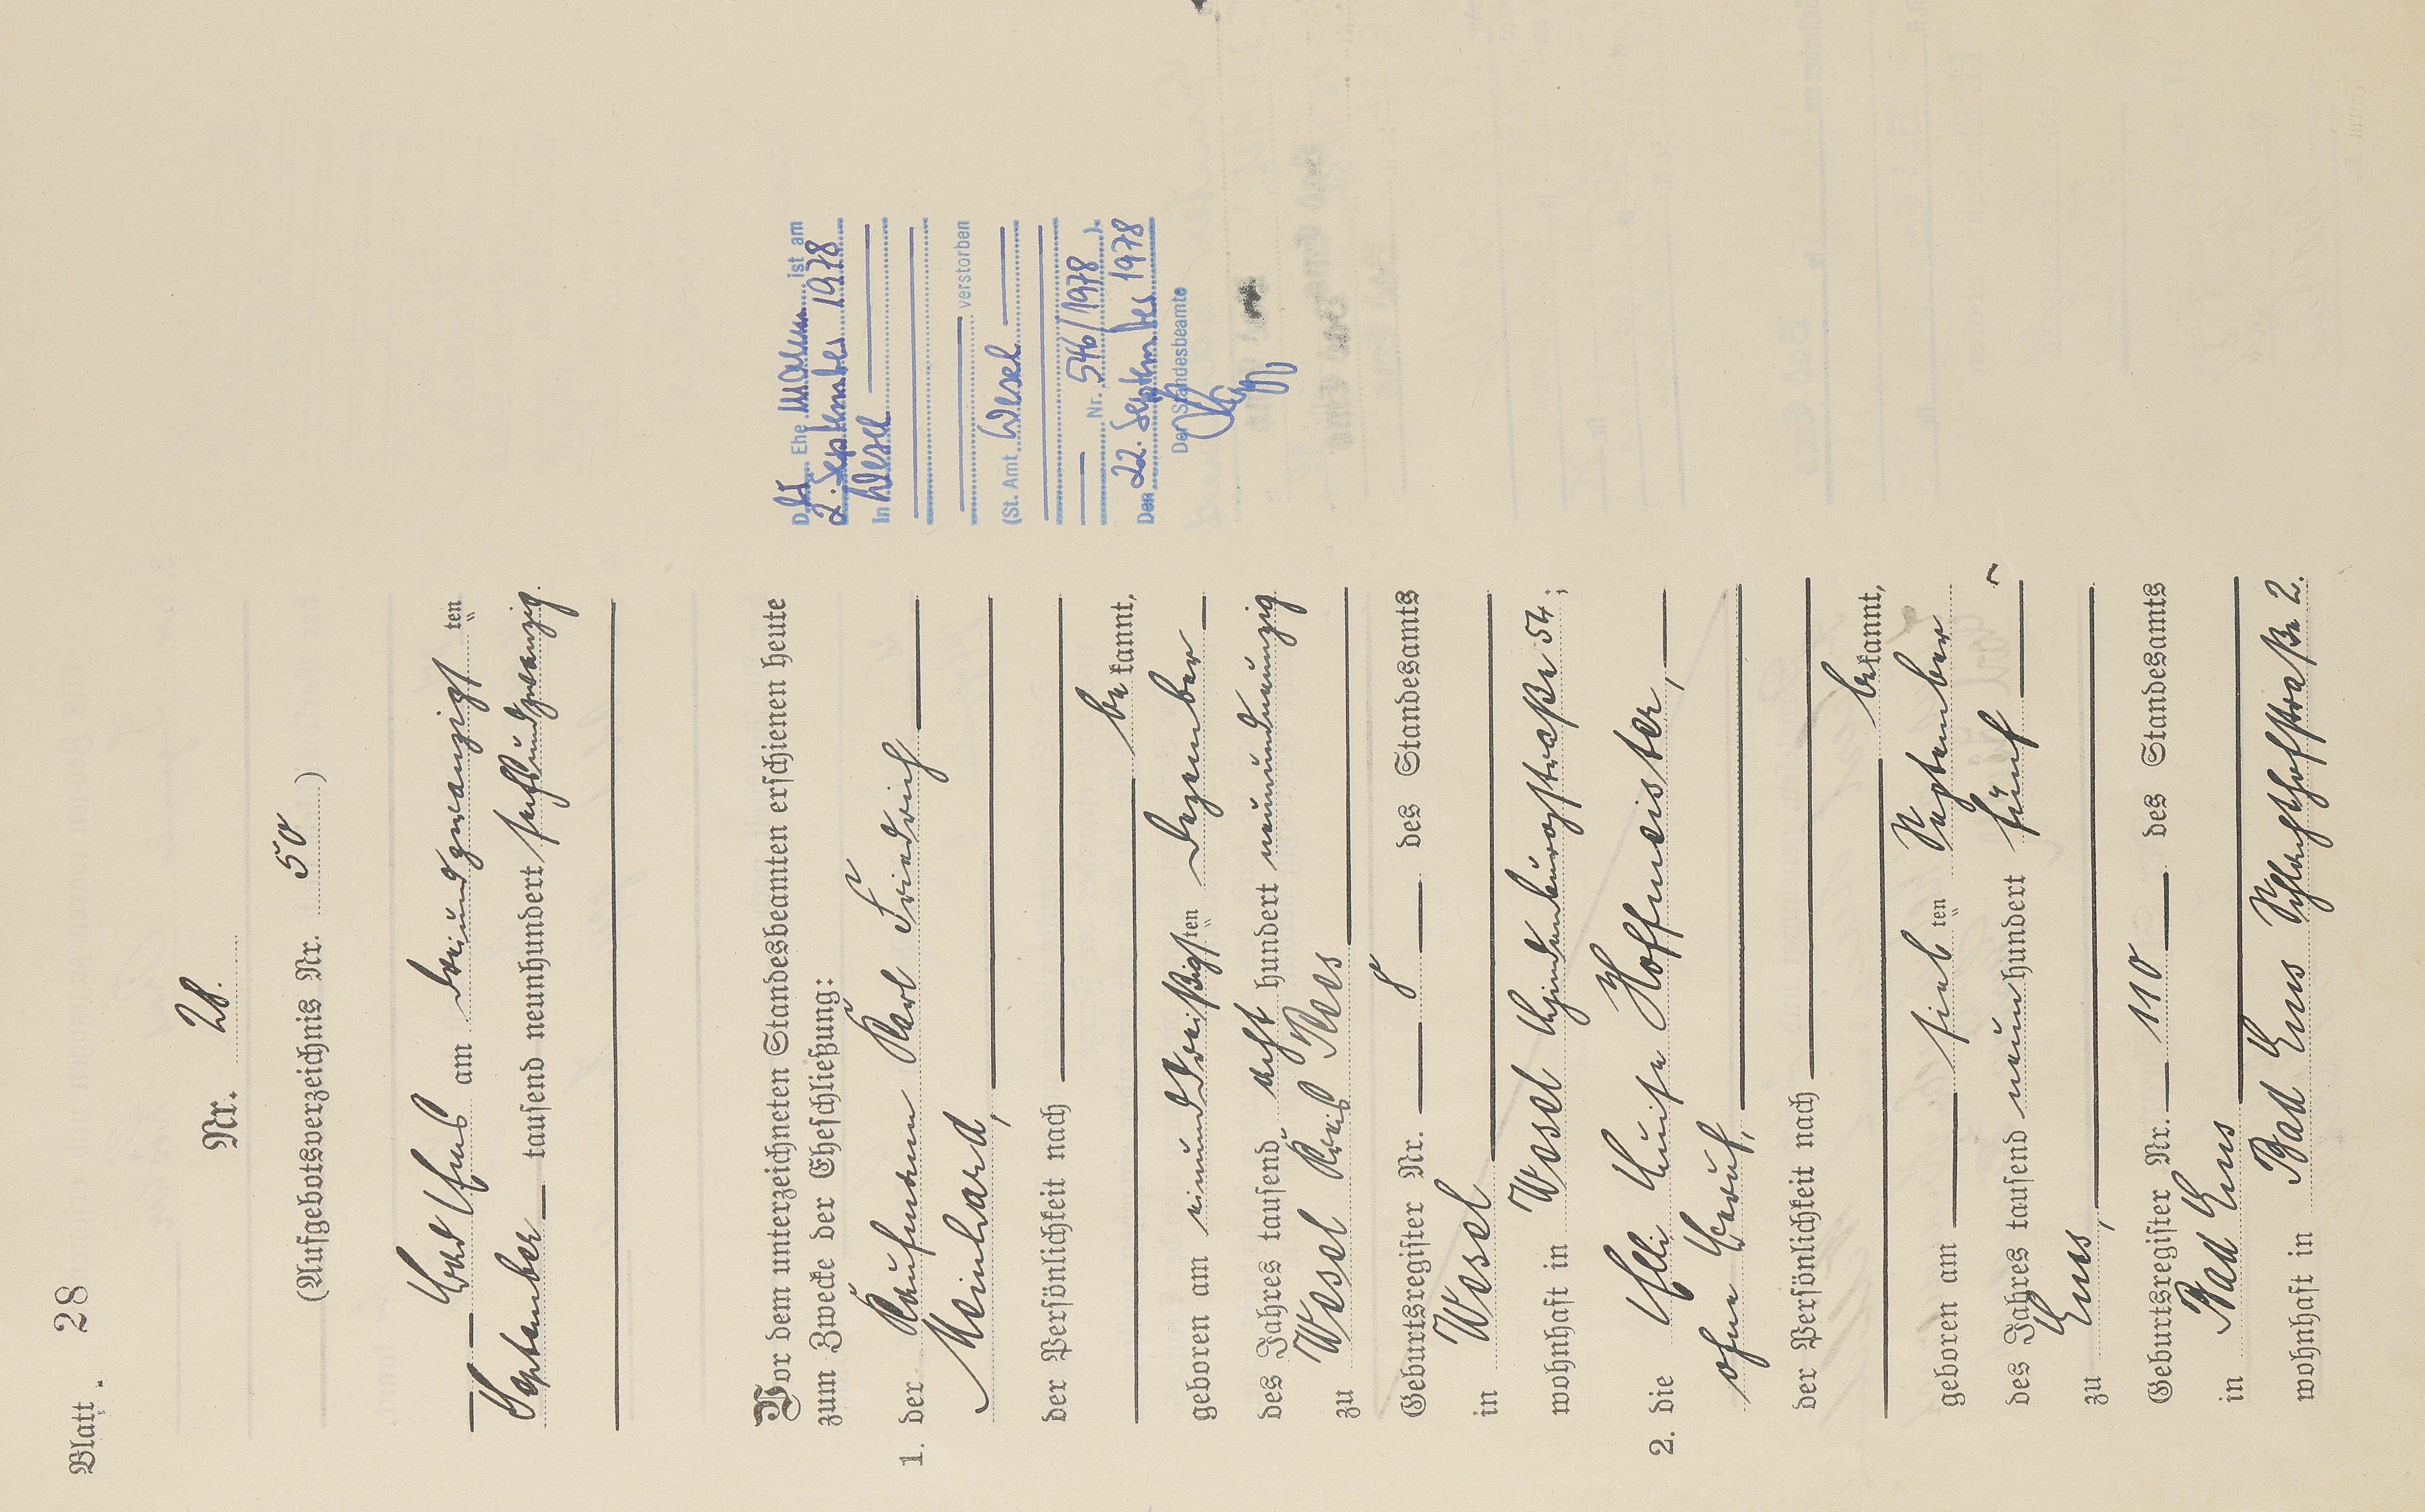 Blatt 28
Nr. 28.
(Aufgebotsverzeichnis Nr. 50)
Bad Ems am dreiundzwanzigsten
September tausend neunhundert sechsundzwanzig.
Vor dem unterzeichneten Standesbeamten erschienen heute
zum Zwecke der Eheschließung:
1. der Kaufmann Karl Friedrich
Meinhard,
der Persönlichkeit nach
bekannt,
geboren am einunddreißigsten Dezember
des Jahres tausend acht hundert neunundneunzig
zu Wesel Kreis Rees
Geburtsregister Nr. 8 des Standesamts
in Wesel
wohnhaft in Wesel Hindenburgstraße 54;
2. die Elli Luise Hoffmeister,
ohne Beruf,
der Persönlichkeit nach
bekannt,
geboren am siebten September
des Jahres tausend neunhundert fünf
zu Ems,
Geburtsregister Nr. 110 des Standesamts
in Bad Ems
wohnhaft in Bad Ems Schlachthofstraße 2.
Der Ehemann ist am
2. September 1978
in Wesel
verstorben
(St. Amt Wesel
Nr. 546/1978).
Den 22. September 1978
Der Standesbeamte